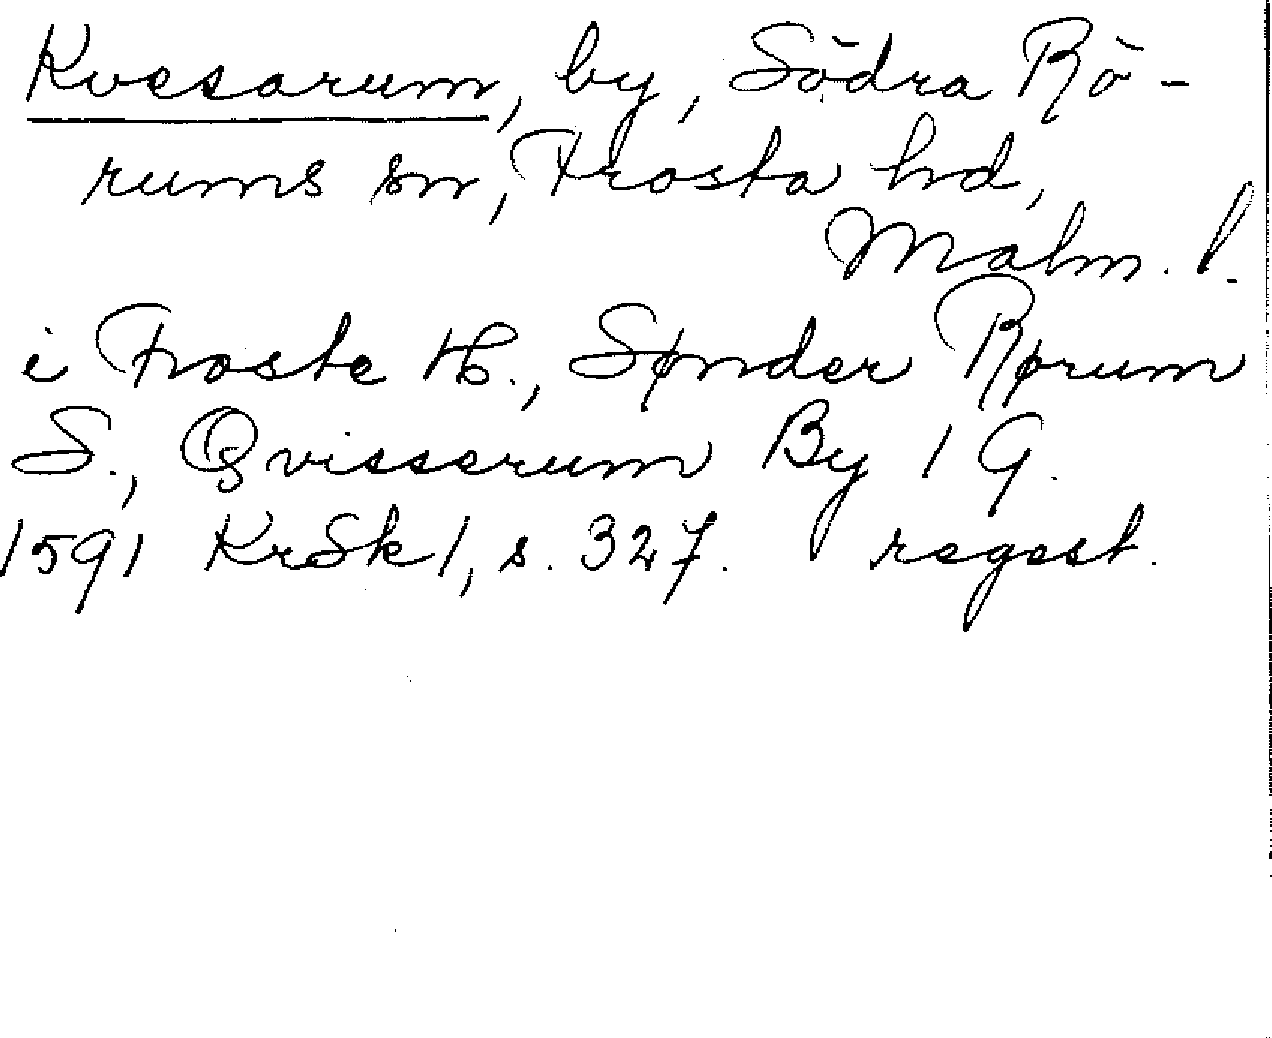 Kvessarum, by, Södra Rö-
rums sn, Frosta hd,
Malm. l.
i Froste H., Sønder Rørum
S., Qvisserum By 1 G.
1591 KrSk 1, s. 327. regest.